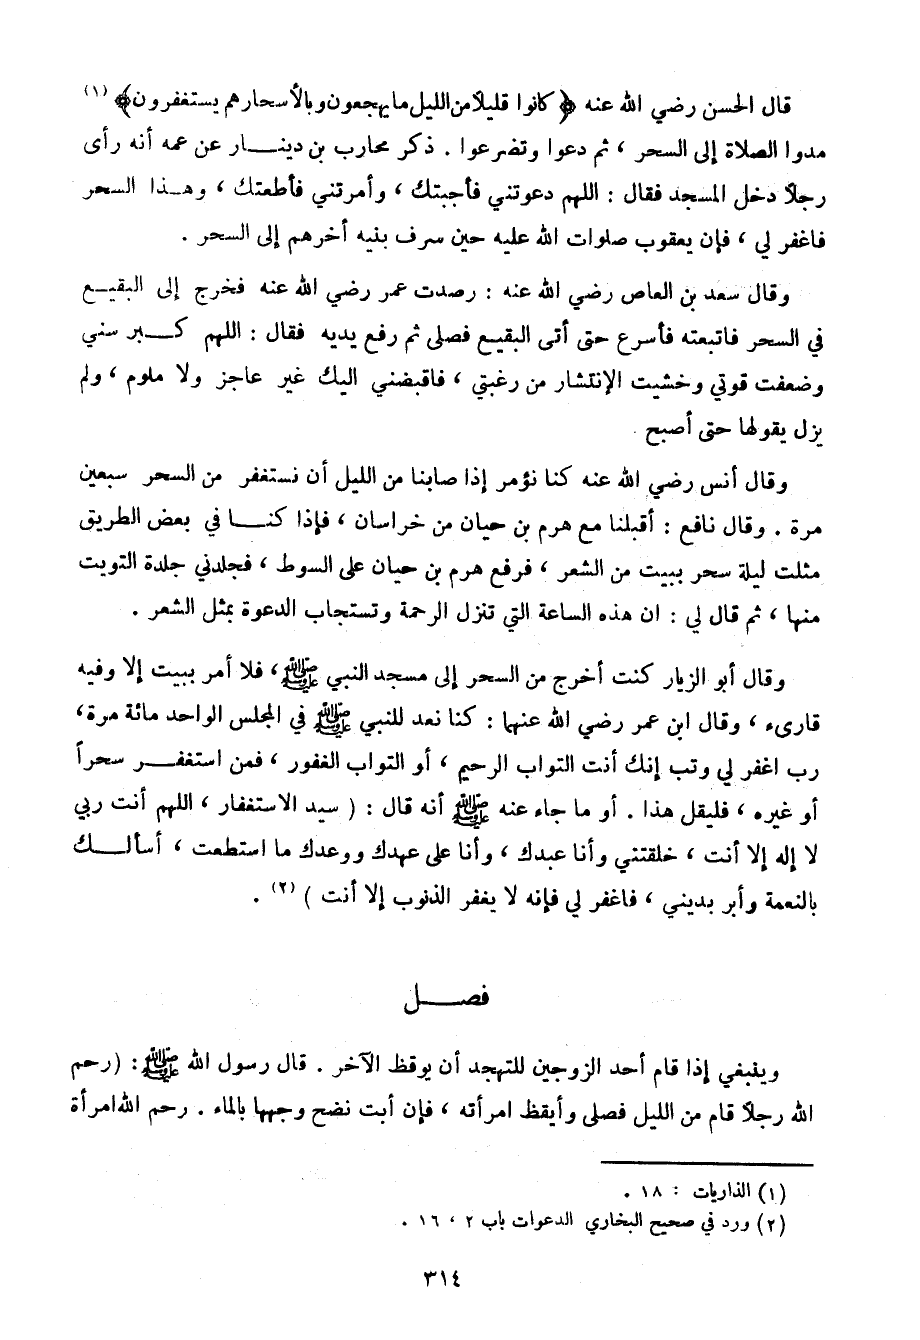 قال الحسن رضي الله عنه ﴿ كانوا قليلاً من الليل ما يهجعون وبالأسحار هم يستغفرون ﴾ (١)
مدوا الصلاة إلى السحر ، ثم دعوا وتضرعوا . ذكر محارب بن دينار عن عمه أنه رأى
رجلاً دخل المسجد فقال : اللهم دعوتني فأجبتك ، وأمرتني فأطعتك ، وهذا السحر
فاغفر لي ، فإن يعقوب صلوات الله عليه حين سرف بنيه أخرهم إلى السحر .
وقال سعد بن العاص رضي الله عنه : رصدت عمر رضي الله عنه فخرج إلى البقيع
في السحر فاتبعته فأسرع حتى أتى البقيع فصلى ثم رفع يديه فقال : اللهم كبر سني
وضعفت قوتي وخشيت الإنتشار من رغبتي ، فاقبضني اليك غير عاجز ولا ملوم ، ولم
يزل يقولها حتى أصبح .
وقال أنس رضي الله عنه كنا نؤمر إذا صابنا من الليل أن نستغفر من السحر سبعين
مرة . وقال نافع : أقبلنا مع هرم بن حيان من خراسان ، فإذا كنا في بعض الطريق
مثلت ليلة سحر ببيت من الشعر ، فرفع هرم بن حيان على السوط ، فجلدني جلدة التويت
منها ، ثم قال لي : ان هذه الساعة التي تنزل الرحمة وتستجاب الدعوة بمثل الشعر .
وقال أبو الزيار كنت أخرج من السحر إلى مسجد النبي ﷺ ، فلا أمر ببيت إلا وفيه
قارىء ، وقال ابن عمر رضي الله عنهما : كنا نعد للنبي ﷺ في المجلس الواحد مائة مرة ،
رب اغفر لي وتب إنك أنت التواب الرحيم ، أو التواب الغفور ، فمن استغفر سحراً
أو غيره ، فليقل هذا . أو ما جاء عنه ﷺ أنه قال : ( سيد الاستغفار ، اللهم أنت ربي
لا إله إلا أنت ، خلقتني وأنا عبدك ، وأنا على عهدك ووعدك ما استطعت ، أسألك
بالنعمة وأبر بديني ، فاغفر لي فإنه لا يغفر الذنوب إلا أنت ) (٢) .
فصل
وينبغي إذا قام أحد الزوجين للتهجد أن يوقظ الآخر . قال رسول الله ﷺ : (رحم
الله رجلاً قام من الليل فصلى وأيقظ امرأته ، فإن أبت نضح وجهها بالماء . رحم الله امرأة
(١) الذاريات : ١٨ .
(٢) ورد في صحيح البخاري الدعوات باب ٢ ، ١٦ .
٣١٤